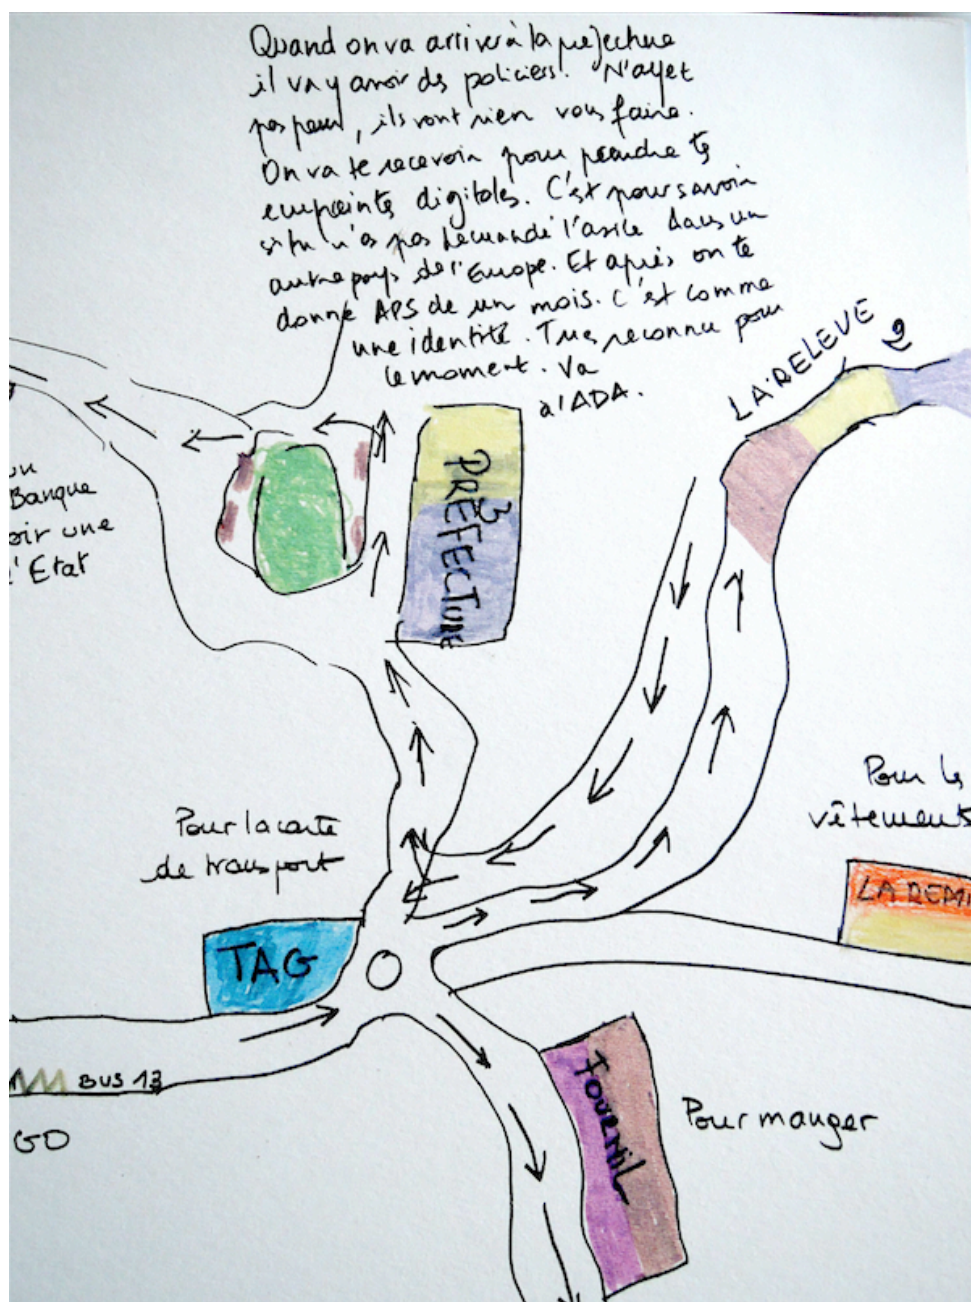 Quand on va arriver à la préfecture
il va y avoir des policiers. N'ayez
pas peur, ils vont rien vous faire.
On va te recevoir pour prendre tes
empreintes digitales. C'est pour savoir
si tu n'as pas demandé l'asile dans un
autre pays de l'Europe. Et après on te
donne APS de un mois. C'est comme
une identité. Tu es reconnu pour
le moment. Va
à l'ADA.
LA RELEVE
2
un
Banque
oir une
l'Etat
PREFECTURE
3
Pour les
vêtements
Pour la carte
de transport
LA REMI
TAG
BUS 13
GO
FOURNIL
Pour manger